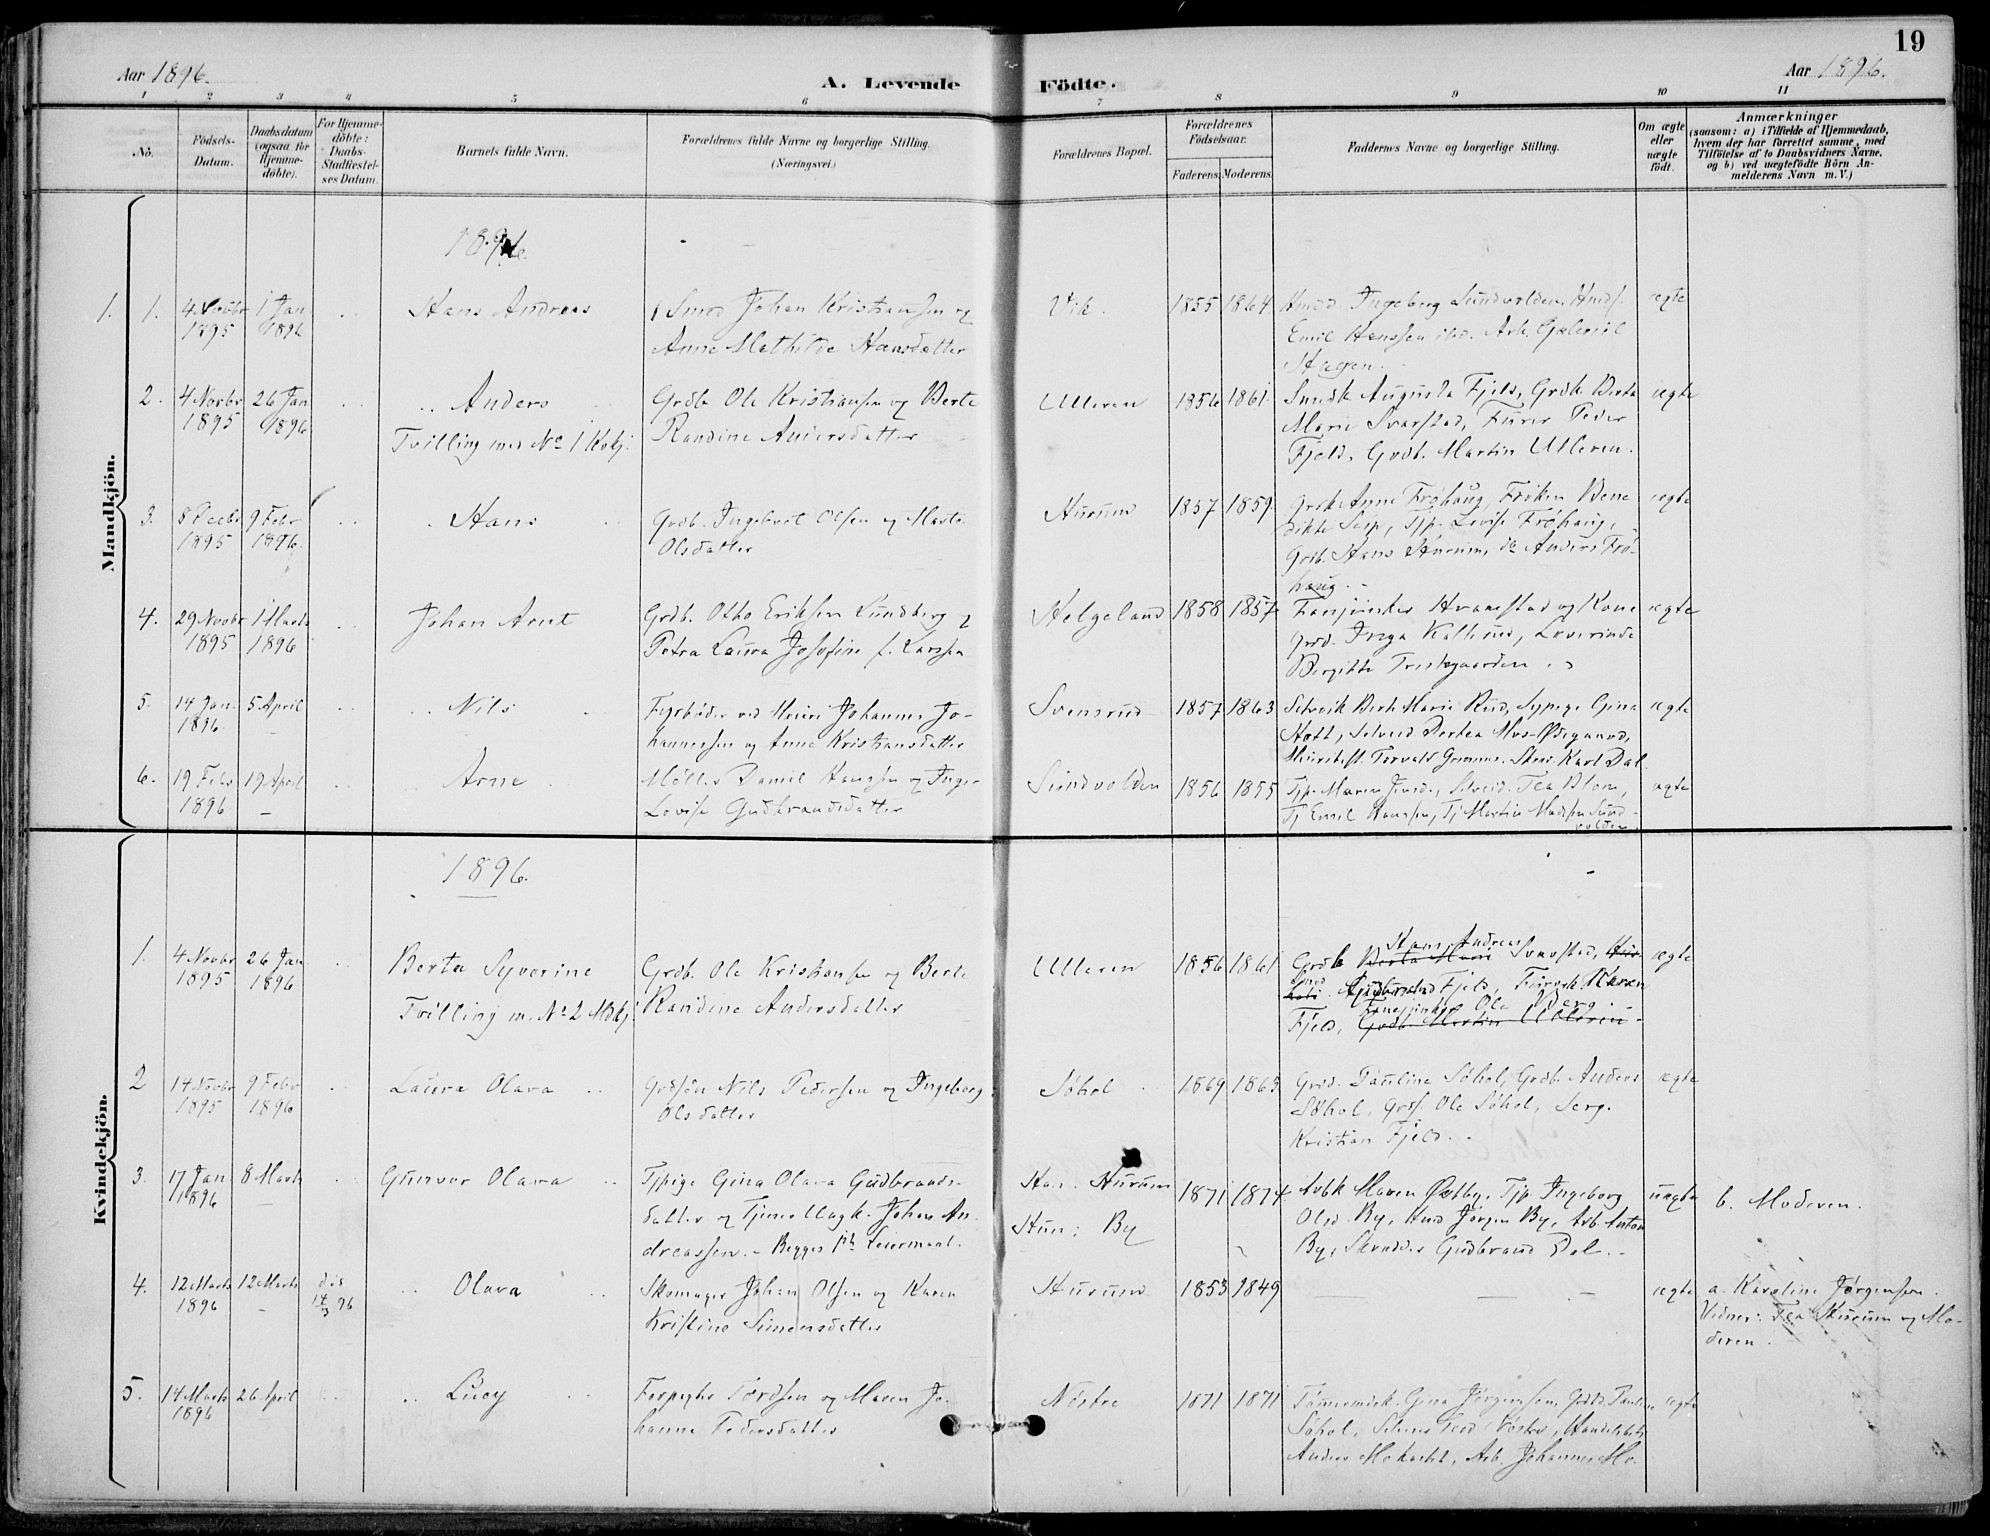 19
Aar 1896.
A. Levende
Födte.
Aar 1896.
1 2 3 4 5 6 7 8 9 10 11
No.
Födsels-
Datum.
Daabsdatum
(ogsaa for
Hjemme-
döbte).
For Hjemme-
döbte:
Daabs-
Stadfæstel-
ses Datum.
Barnets fulde Navn.
Forældrenes fulde Navne og borgerlige Stilling.
(Næringsvei.)
Forældrenes Bopæl.
Forældrenes
Födselsaar.
Faderens.
Moderens.
Faddernes Navne og borgerlige Stilling.
Om ægte
eller
uægte
födt.
Anmærkninger
(saasom: a) i Tilfælde af Hjemmedaab,
hvem der har forrettet samme, med
Tilföielse af to Daabsvidners Navne,
og b) ved uægtefödte Börn An-
melderens Navn m. V.)
Mandkjön.
1896
1. 1.
4 Novbr
1895
1 Jan
1896
Hans Andreas
Smed Johan Kristiansen og
Anne Mathilde Hansdatter
Vik.
1855
1864
Ingeborg Sundvolden,
Emil Hanssen ibd. Arb. Gabriel
Hagen.
ægte
2.
4 Novbr
1895
26 Jan
1896
Anders
Tvilling med No 1 Kvkj.
Grdb. Ole Kristiansen og Berte
Randine Andersdatter
Ulleren
1856
1861
Smedk. Augusta Fjeld, Grdk. Berta
Marie Svarstad, Furer Peder
Fjeld, Grdb. Martin Ulleren.
ægte
3.
8 Decbr
1895
9 Febr
1896
Hans
Grdb. Ingebret Olsen og Marte
Olsdatter
Hurum
1857
1859
Grdk Anne Fröhaug, Fröken Bene
dikte Tjp. Lovise Fröhaug,
Grdb. Hans Hurum, do Anders Frö-
haug.
ægte
4.
29 Novbr
1895
1 Marts
1896
Johan Arnt
Grdb. Otto Eriksen Lundberg og
Petra Laura Josefine f. Larssen
Helgeland
1858
1857
Fanejunker Hvamstad og Kone
Inga Kallerud,
Birgitte
ægte
5.
14 Jan.
1896
5 April
Nils
Fyrböder ved Meieri Johannes Jo-
hannessen og Anne Kristiansdatter
Svensrud
1857
1863
Berte Marie Rud, Sypige Gina
Karl Dal
ægte
6.
19 Febr
1896
19 April
Arne
Möller Daniel Hansen og Inger
Lovise Gudbrandsdatter
Sundvolden
1856
1855
Tjp. Maren Tea Blom,
Tj Emil Hanssen, Tj Martin Madsen Sund-
volden.
ægte
Kvindekjön.
1896.
1.
4 Novbr
1895
26 Jan
1896
Berta Syverine
Tvilling m. No 2 Mdkj.
Grdb. Ole Kristiansen og Berte
Randine Andersdatter
Ulleren
1856
1861
Hans Andreas
Grdb Berta Marie Svarstad,
Smed Fjeld, Furerk. Maren
Fanejunker Ole Berg.
Fjeld, Grdb. Martin Ulleren.
ægte
2
14 Novbr
1895
9 Febr
1896
Laura Olava
Grdsön Nils Pedersen og Ingeborg
Olsdatter
Söhol
1869
1863
Grdd. Pauline Söhol, Grdb. Anders
Söhol, Grds. Ole Söhol, Serg.
Kristian Fjeld.
ægte
3.
17 Jan
1896
8 Marts
Gunvor Olava
Tjpige Gina Olava Gudbrands-
datter og Tjener Ungk. Johan An-
dreassen. Begges 1ste Leiermaal.
Han: Hurum
Hun: By
1871
1874
Arbk Maren Östby, Tjp. Ingeborg
Olsd. By, Jörgen By, Arb Anton
By, Gudbrand Dal.
uægte
b. Moderen.
4.
12 Marts
1896
12 Marts
död
14/3 96
Olava
Skomager Johan Olsen og Karen
Kristine Simensdatter
Hurum
1853
1849
ægte
a. Karoline Jörgensen.
Vidner: Tea Hurum og Mo-
deren.
5.
14 Marts
1896
26 April
Lucy
Tordsen og Maren Jo-
hanne Pedersdatter
Nöstre
1871
1871
Tömermdsk. Gina Jörgensen, Grdd. Pauline
Söhol,
Anders Arb. Johannes Mo.
ægte